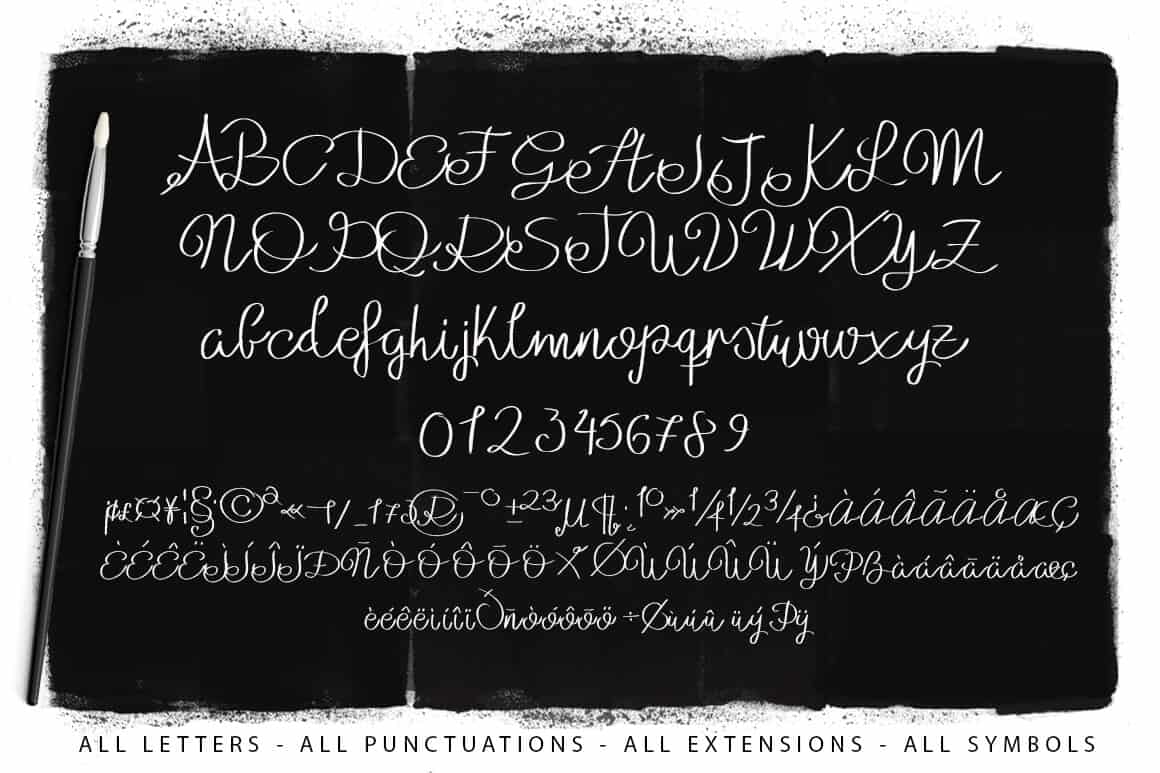 ABCDEFGHIJKLM
NOPQRSTUVWXYZ
abcdefghijklmnopqrstuvwxyz
0123456789
¡¢£¤¥¦§¨©ª«¬/_173®¯°±²³µ¶·¸¹º»¼½¾¿ÀÁÂÃÄÅÆÇ
ÈÉÊËÌÍÎÏÐÑÒÓÔÕÖ×ØÙÚÛÜÝÞßàáâãäåæç
èéêëìíîïðñòóôõö÷øùúû üýþÿ
ALL LETTERS - ALL PUNCTUATIONS - ALL EXTENSIONS - ALL SYMBOLS